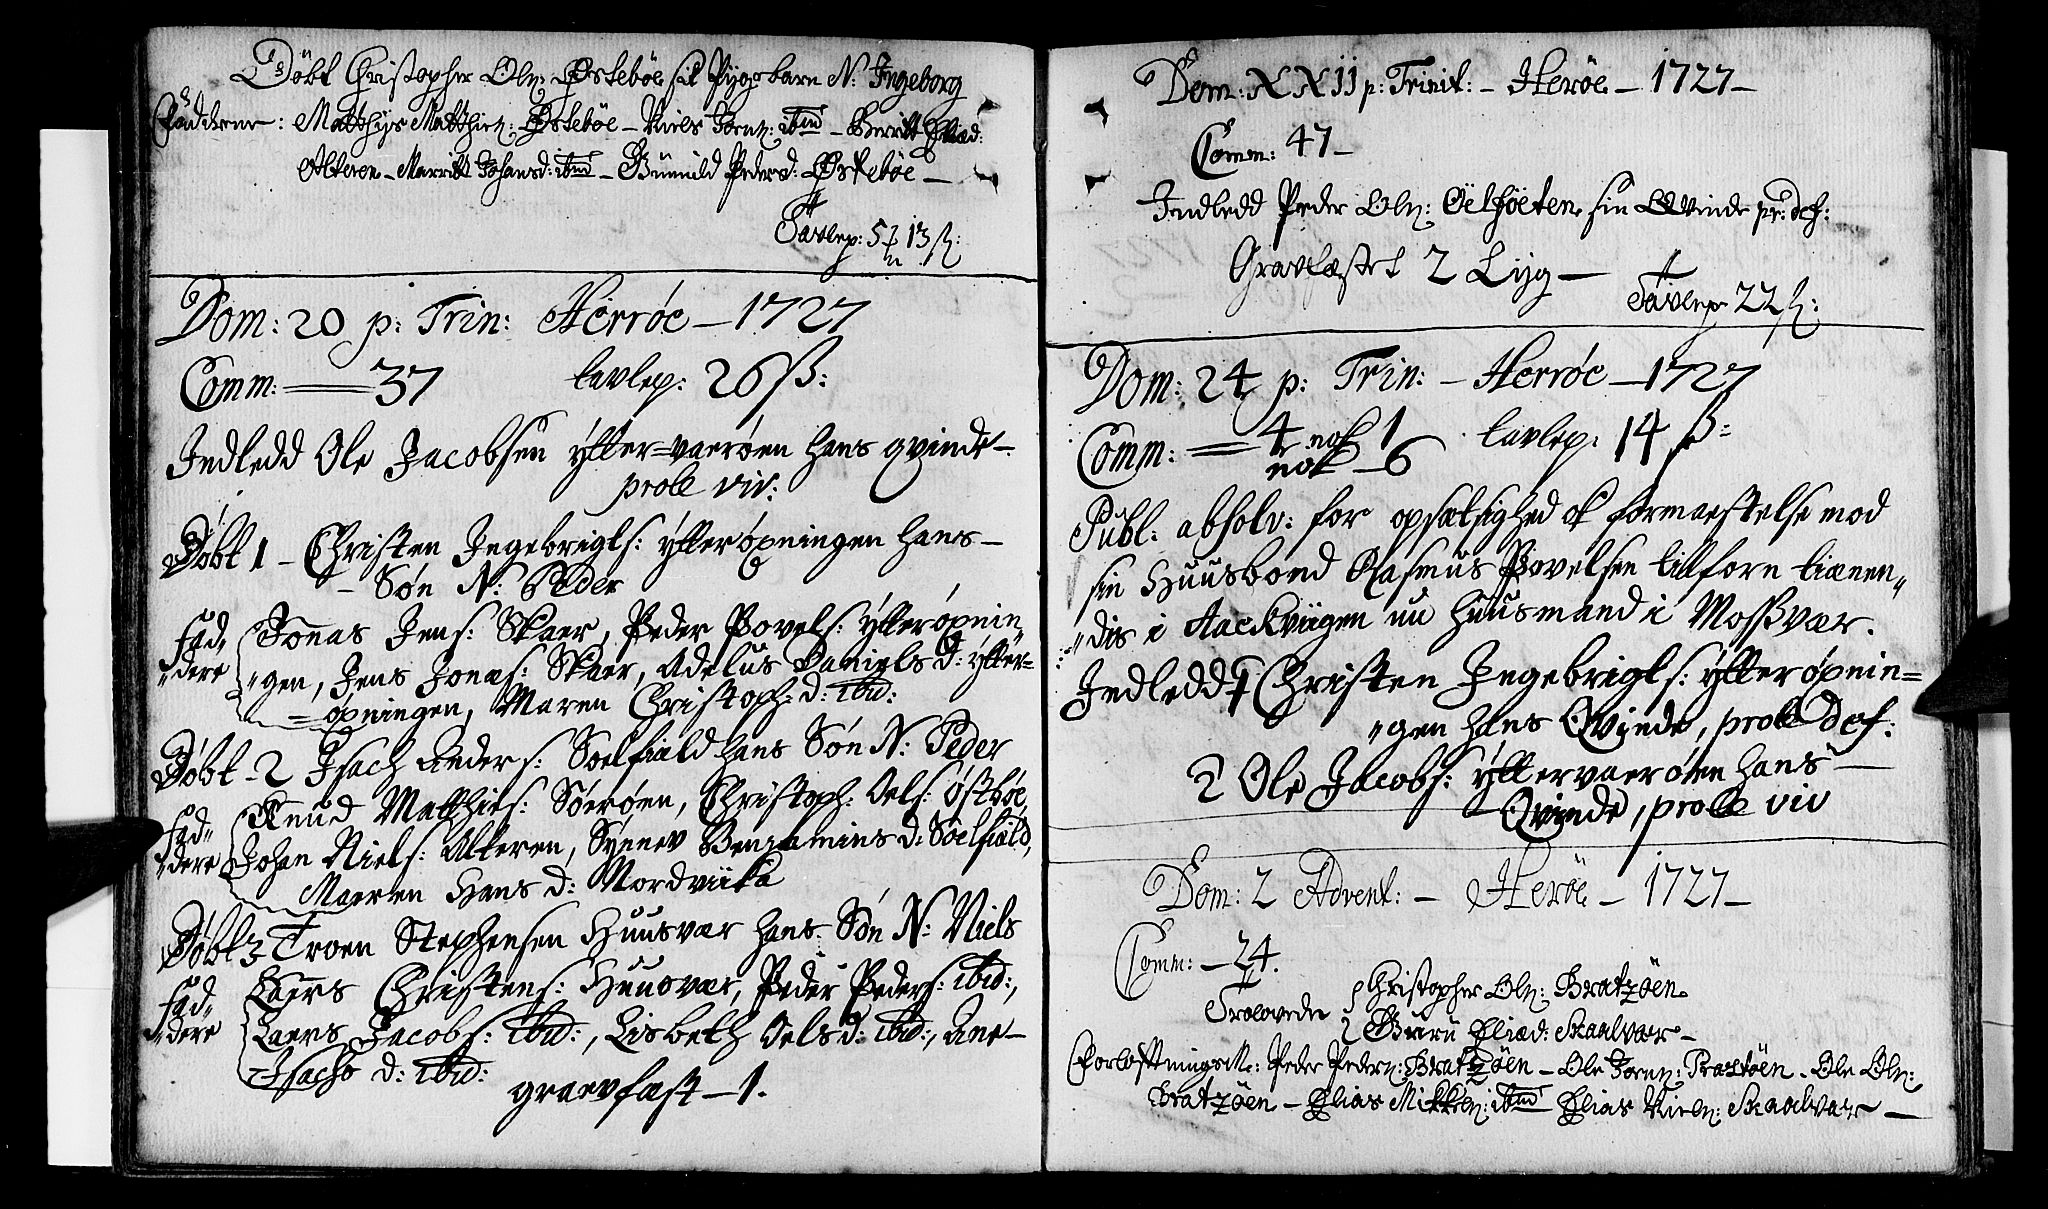 Döbt Christopher Ols: Östeböe sit Pÿge barn N: Ingeborg
Faddrene: Matthÿs Matthies: Östeböe – Niels Joens: ibid – Berritt Eliæd:
Alteren – Marritt Johansd: ibid – Gunnild Pedersd: Östeböe –
Tavlep: 5 13 ß:
Dom: 20 p: Trin: Herröe – 1727
Comm: 37 tavlep: 26 ß:
Indledd Ole Jacobsen ÿtter=vaerøen hans qvinde –
prole viv:
Döbt 1 – Christen Ingebrigts: ÿtterøpningen hans –
– Søn N: Peder
fad= Jonas Jens: Skaer, Peder Povels: ÿtterøpnin
=dere =gen, Jens Jonæs: Skaer, Adelus Daniels d: ÿtter=
=øpningen, Maren Christoph: d: ibid:
Døbt – 2 Isach Anders: Soelfiæld hans Søn N: Peder
fad= Knud Matthies: Sørøen, Christoph: Oels: Östbøe,
=dere Johan Niels: Alteren, Sÿnnev Benjamins d: Søelfiæld,
Maeren Hans d: Nordviika
Døbt 3 Troen Stephensen Huusvær hans Søn N: Niels
fad= Laers Christens: Huusvær, Peder Peders: ibid:,
=dere Laers Jacobs: ibid:, Lisbeth Oels d: ibid:, Ane –
Isachs d: ibid:
graevfæst – 1.
Dom: XXII p: Trinit: – Heröe – 1727 –
Comm: 47 –
Indledd Peder Ols: sin Qvinde pr: def:
Gravfæstet 2 Lijg –
Tavlep 22 ß:
Dom: 24 p: Trin: – Herröe – 1727
Comm: = 4 nok 1 tavlep: 14 ß:
nok – 6
Publ: absolv: for opsætsighed og formastelse mod
sin Huusbond Rasmus Povelsen tillforn tiænen=
=dis i Aackviigen nu huusmand i Mossvær.
Indledd 1 Christen Ingebrigts: ÿtterøpnin=
=gen hans Qvinde, prole def:
2 Ole Jacobs: ÿttervaerøen hans
Qvinde, prole viv
Dom: 2 Advent: – Heröe – 1727 –
Comm: – 24.
Trolovede Christopher Ols: Bratzöen
Guru Eliæd: Skaalvær –
Forloftningsm: Peder Peders: Bratzöen – Ole Joens: Prastöen – Ole Ols:
Bratzöen – Elias Mikkels: ibid – Elias Niels: Skaalvær –